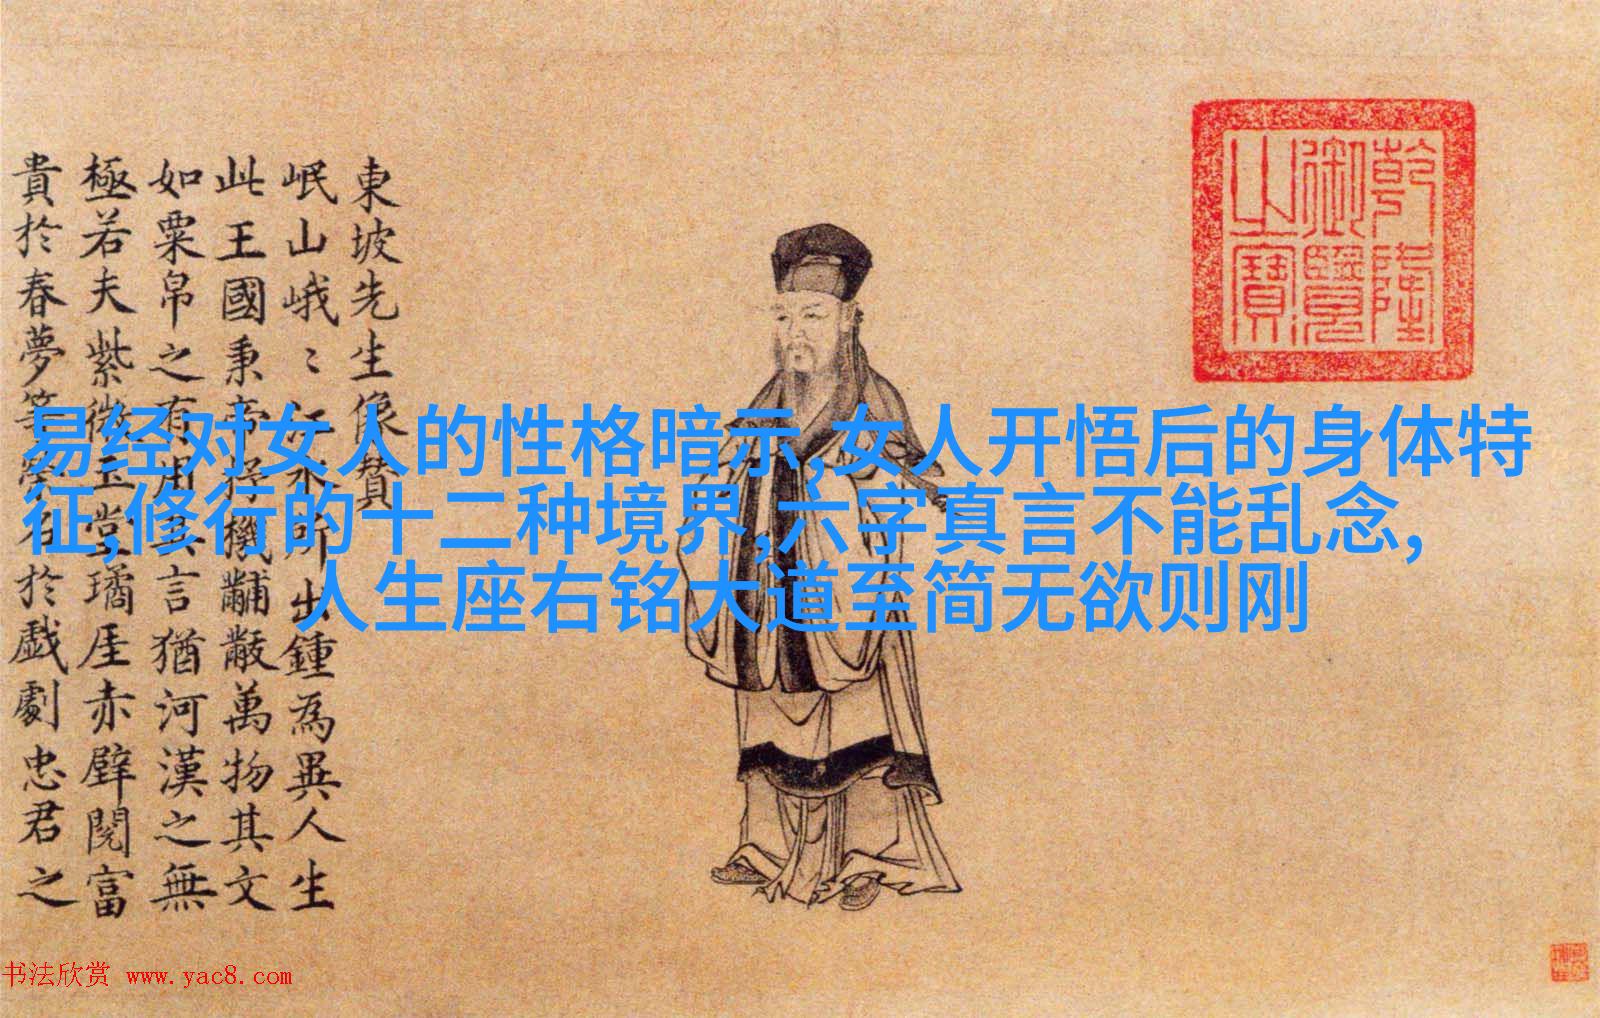 東坡先生像贊
岷山峨〻江水所出鍾為異人生
此王國秉帝杼機黼黻萬物其文
如粟帛之有用其言猶河漢之無
極若夫紫微玉堂璚厓赤壁閱富
貴於春夢等榮名於戲劇忠君之
乾隆
御覽
之寶
易经对女人的性格暗示,女人开悟后的身体特
征,修行的十二种境界,六字真言不能乱念,
人生座右铭大道至简无欲则刚
书法欣赏 www.yac8.com